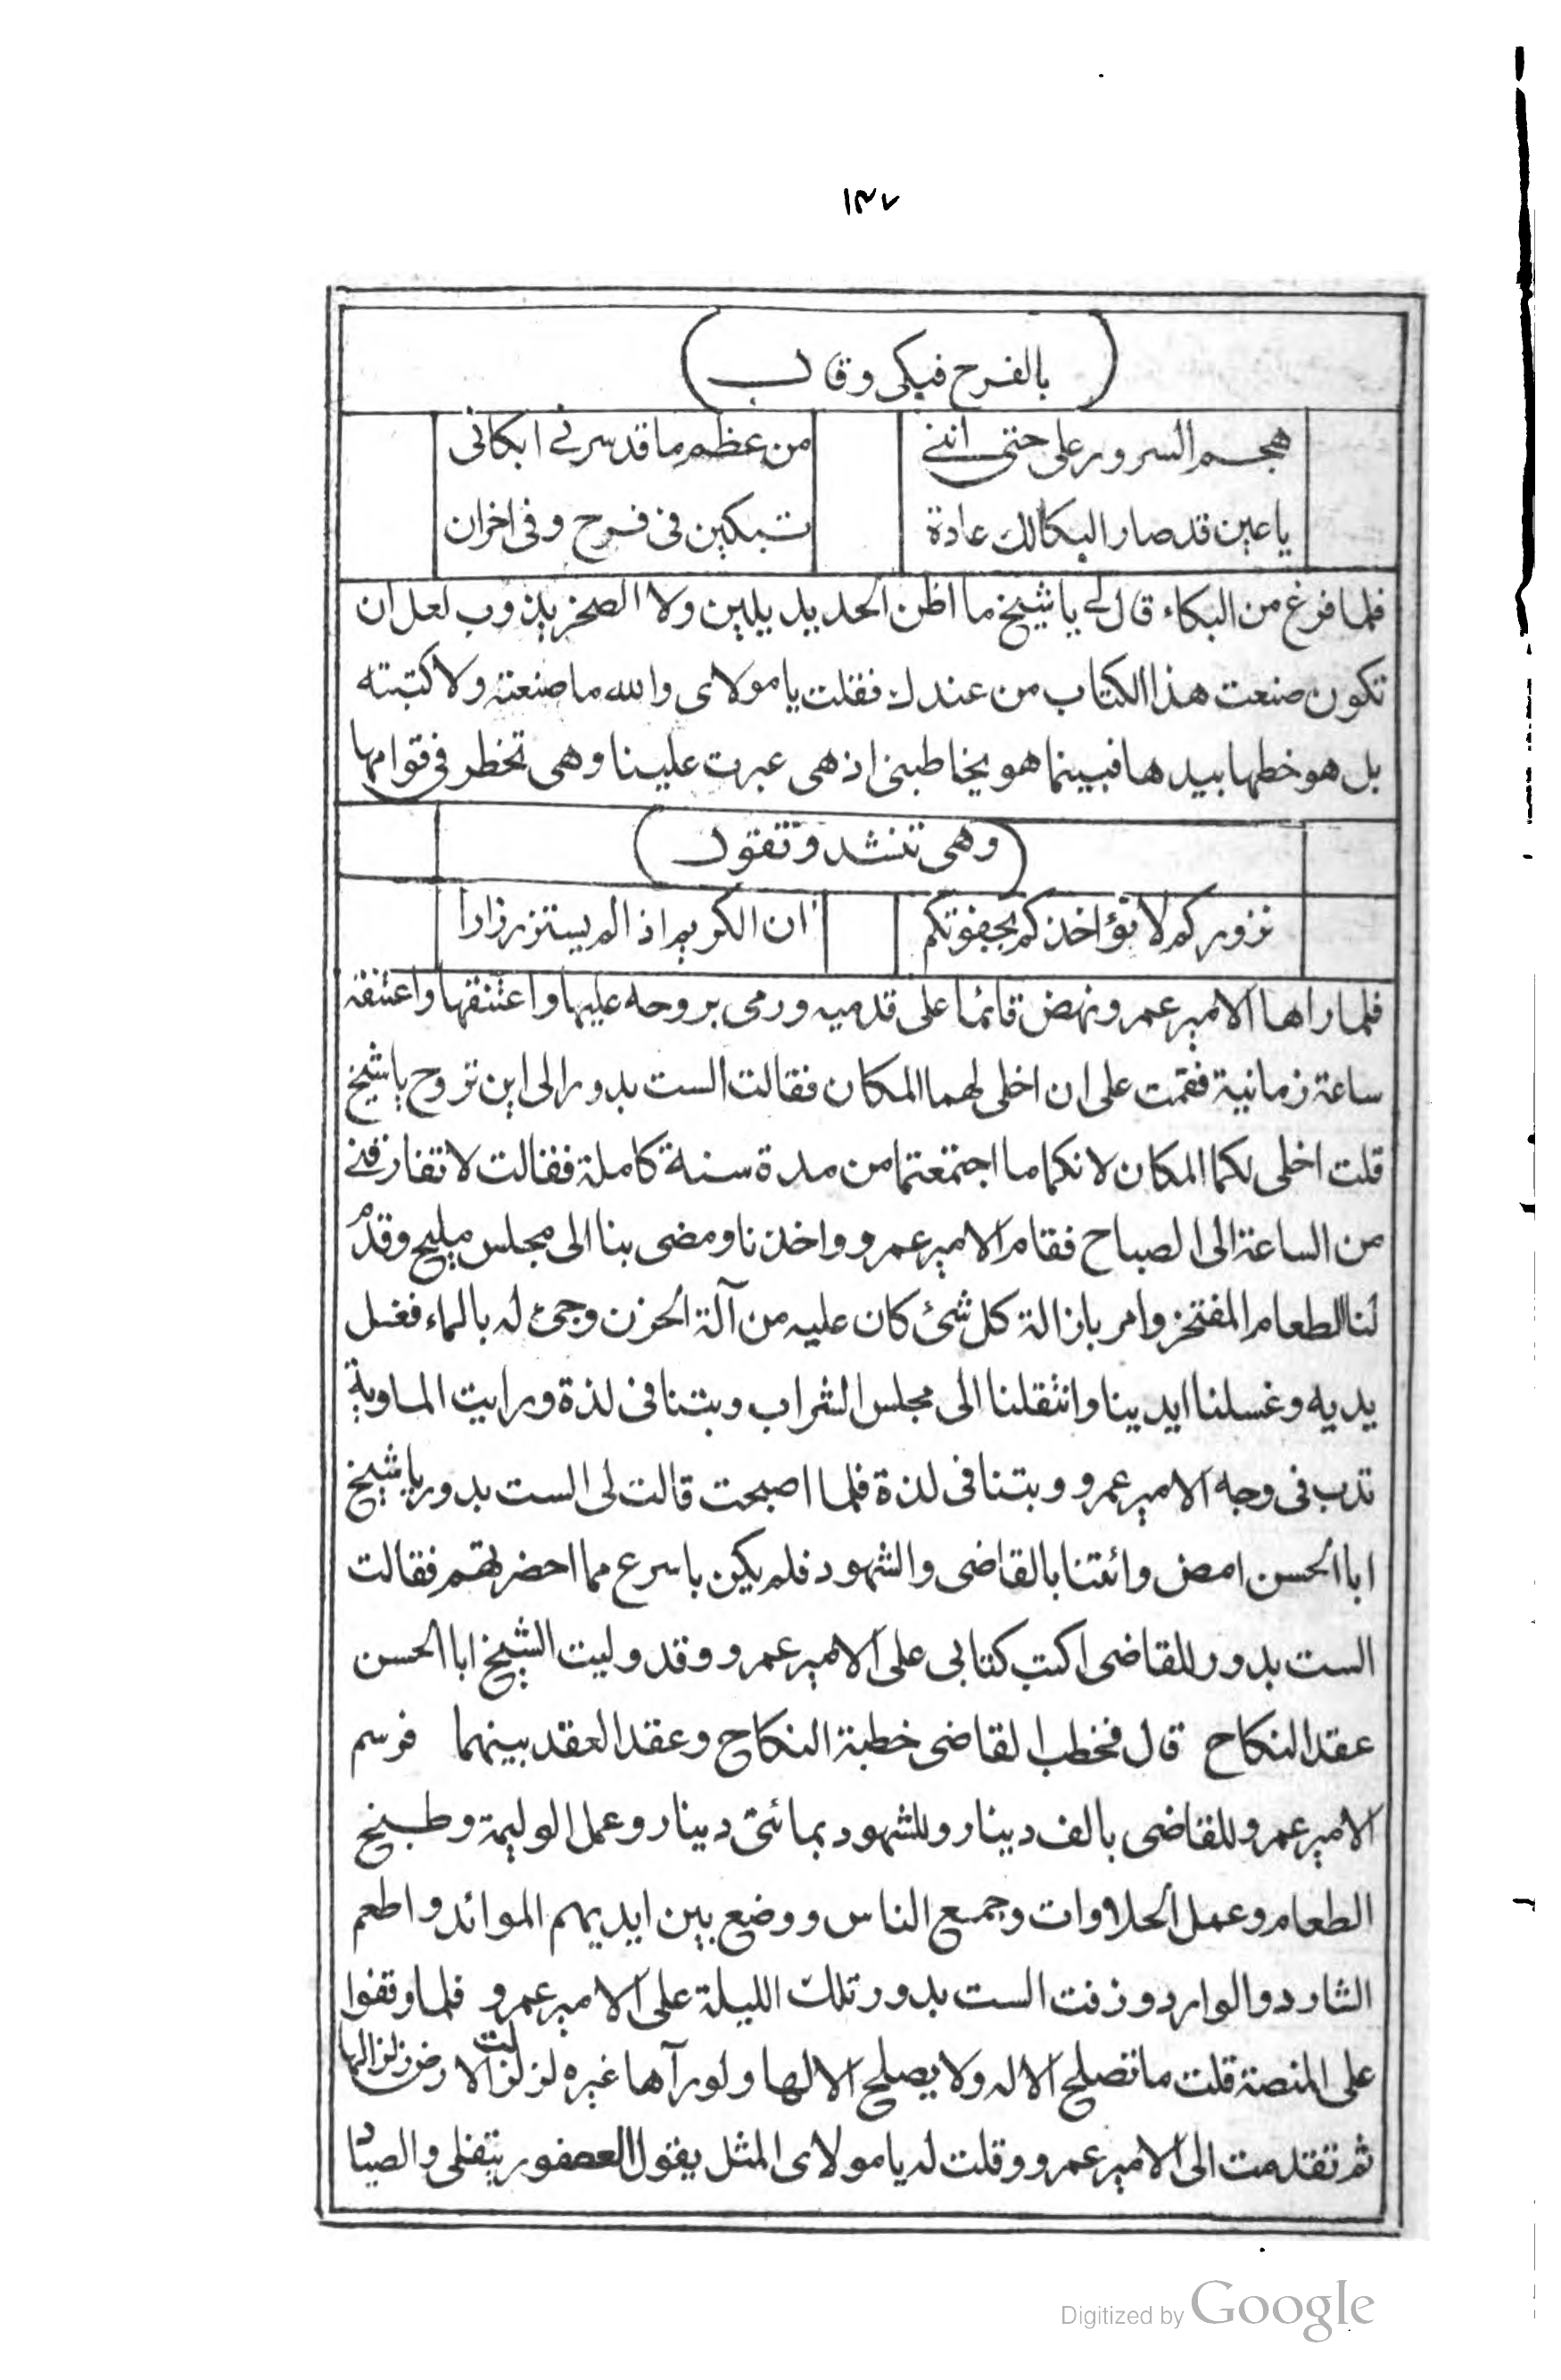 ١٣٧
(بالفرح فبكى وقال)
هجم السرور علي حتى انني من عظم ما قد سرني ابكانى
يا عين قد صار البكا لك عادة تبكين فى فرح وفى احزان
فلما فرغ من البكاء قال لي يا شيخ ما اظن الحديد يلين ولا الصخر يذوب لعل ان
تكون صنعت هذا الكتاب من عندك فقلت يا مولاى والله ما صنعته ولا كتبته
بل هو خطها بيدها فبينما هو يخاطبنى اذ هى عبرت علينا وهى تخطر فى قوامها
(وهى تنشد وتقول)
نزوركم لا نؤاخذكم بجفوتكم ان الكريم اذا لم يستزر زارا
فلما راها الامير عمرو نهض قائما على قدميه ورمى بروحه عليها واعتنقها واعتنقته
ساعة زمانية فقمت على ان اخلى لهما المكان فقالت الست بدور الى اين تروح يا شيخ
قلت اخلى لكما المكان لانكما ما اجتمعتما من مدة سنة كاملة فقالت لا تفارقني
من الساعة الى الصباح فقام الامير عمرو واخذنا ومضى بنا الى مجلس مليح وقدم
لنا الطعام المفتخر وامر بازالة كل شئ كان عليه من آلة الحزن وجئ له بالماء فغسل
يديه وغسلنا ايدينا وانتقلنا الى مجلس الشراب وبتنا فى لذة ورايت الماوية
تدب فى وجه الامير عمرو وبتنا فى لذة فلما اصبحت قالت لى الست بدور يا شيخ
ابا الحسن امض وائتنا بالقاضى والشهود فلم يكن باسرع مما احضرتهم فقالت
الست بدور للقاضى اكتب كتابى على الامير عمرو وقد وليت الشيخ ابا الحسن
عقد النكاح قال فخطب القاضى خطبة النكاح وعقد العقد بينهما فرسم
الامير عمرو للقاضى بالف دينار وللشهود بمائتى دينار وعمل الوليمة وطبخ
الطعام وعمل الحلاوات وجمع الناس ووضع بين ايديهم الموائد واطعم
الشارد والوارد وزفت الست بدور تلك الليلة على الامير عمرو فلما وقفوا
على المنصة قلت ما تصلح الا له ولا يصلح الا لها ولو رآها غيره لزلزلت الارض زلزالها
ثم تقدمت الى الامير عمرو وقلت له يا مولاى المثل يقول العصفور يتفلى والصياد
Digitized by Google